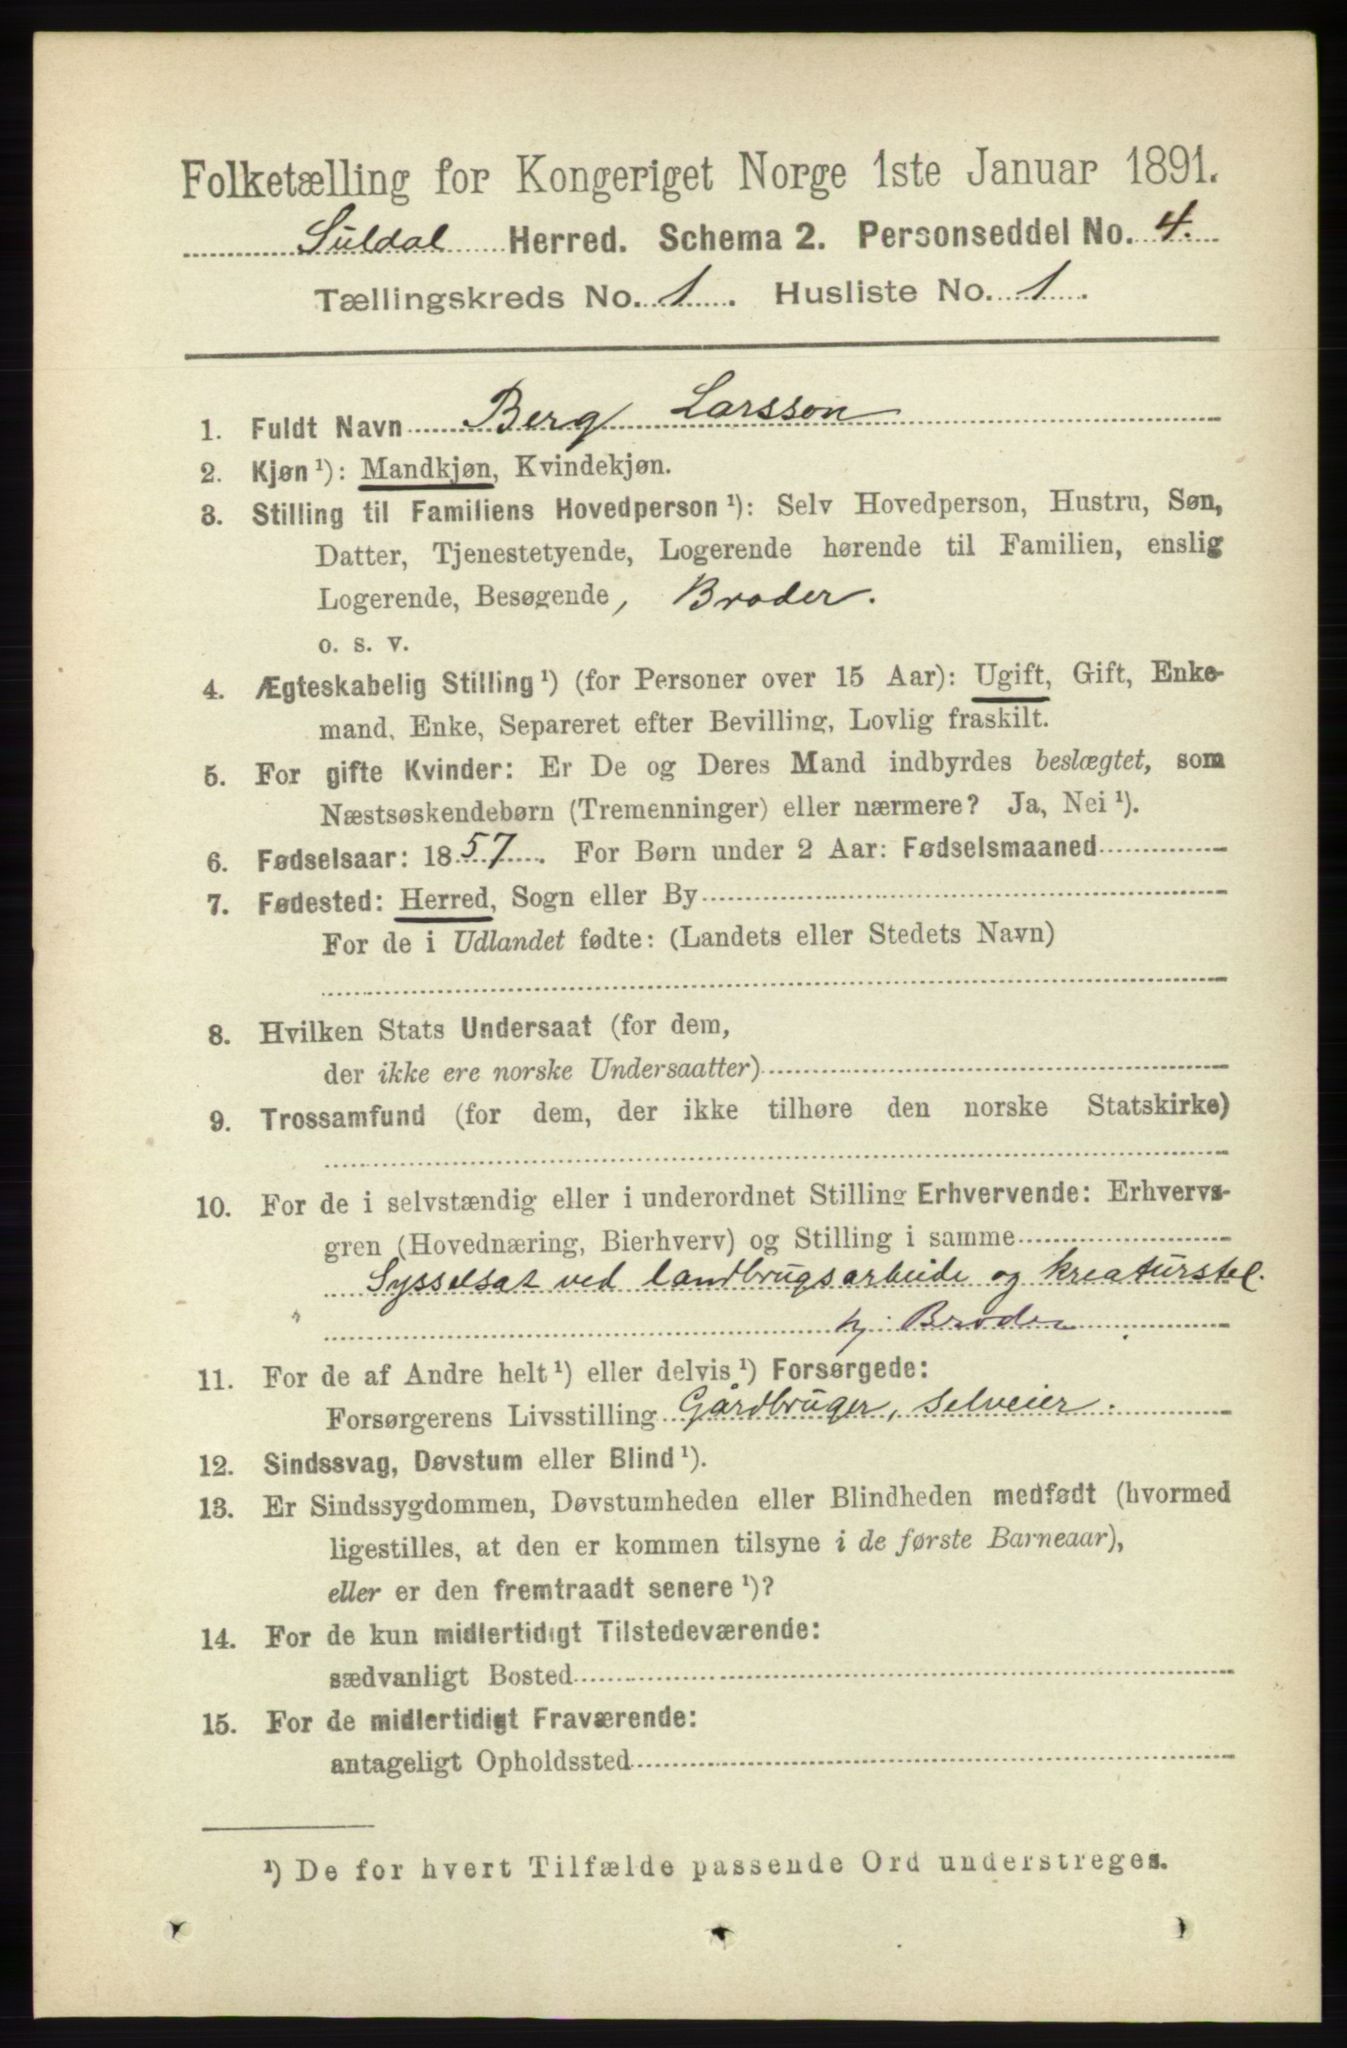 Folketælling for Kongeriget Norge 1ste Januar 1891.
Suldal Herred. Schema 2. Personseddel No. 4.
Tællingskreds No. 1. Husliste No. 1.
1. Fuldt Navn Berg Larsson
2. Kjøn ¹): Mandkjøn, Kvindekjøn.
3. Stilling til Familiens Hovedperson ¹): Selv Hovedperson, Hustru, Søn,
Datter, Tjenestetyende, Logerende hørende til Familien, enslig
Logerende, Besøgende, Broder.
o. s. v.
4. Ægteskabelig Stilling ¹) (for Personer over 15 Aar): Ugift, Gift, Enke-
mand, Enke, Separeret efter Bevilling, Lovlig fraskilt.
5. For gifte Kvinder: Er De og Deres Mand indbyrdes beslægtet, som
Næstsøskendebørn (Tremenninger) eller nærmere? Ja, Nei ¹).
6. Fødselsaar: 1857. For Børn under 2 Aar: Fødselsmaaned
7. Fødested: Herred, Sogn eller By
For de i Udlandet fødte: (Landets eller Stedets Navn)
8. Hvilken Stats Undersaat (for dem,
der ikke ere norske Undersaatter)
9. Trossamfund (for dem, der ikke tilhøre den norske Statskirke)
10. For de i selvstændig eller i underordnet Stilling Erhvervende: Erhvervs-
gren (Hovednæring, Bierhverv) og Stilling i samme
Sysselsat ved landbrugsarbeide og kreaturstel.
hj. Broder
11. For de af Andre helt ¹) eller delvis ¹) Forsørgede:
Forsørgerens Livsstilling Gårdbruger, selveier.
12. Sindssvag, Døvstum eller Blind ¹).
13. Er Sindssygdommen, Døvstumheden eller Blindheden medfødt (hvormed
ligestilles, at den er kommen tilsyne i de første Barneaar),
eller er den fremtraadt senere ¹)?
14. For de kun midlertidigt Tilstedeværende:
sædvanligt Bosted
15. For de midlertidigt Fraværende:
antageligt Opholdssted
¹) De for hvert Tilfælde passende Ord understreges.